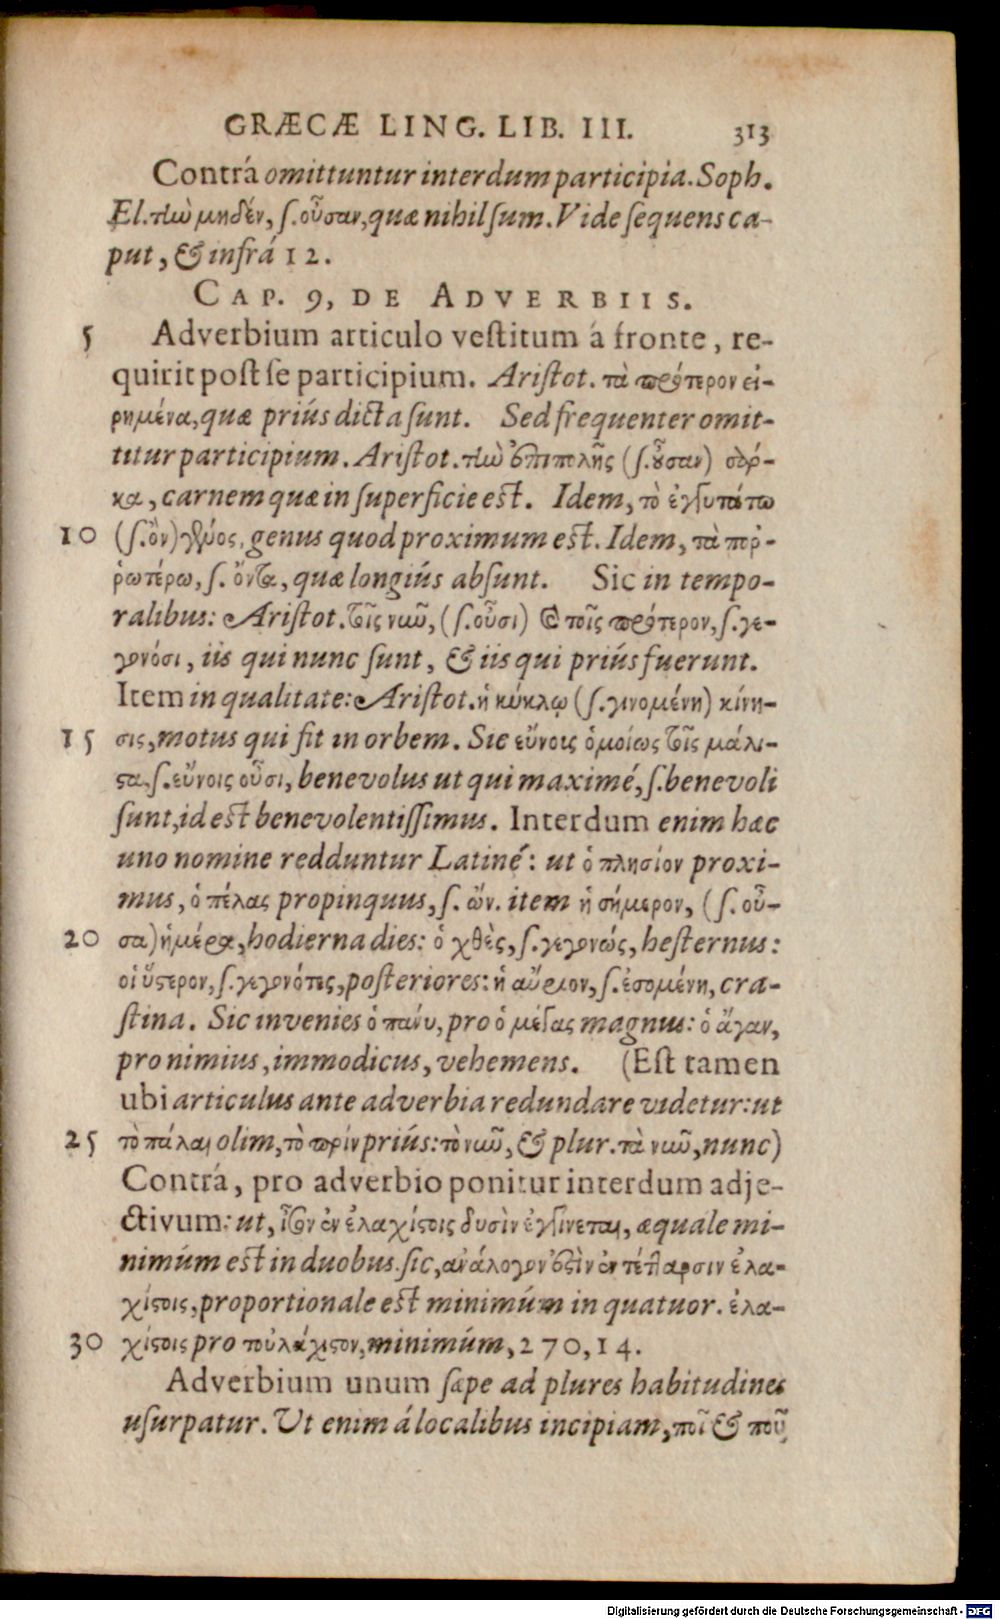 GRÆCÆ LING. LIB. III. 313
Contrá omittuntur interdum participia. Soph.
El. τὴν μηδέν, ſ. οὖσαν, quæ nihil ſum. Vide ſequens ca-
put, & infrá 12.
CAP. 9, DE ADVERBIIS.
5 Adverbium articulo veſtitum á fronte, re-
quirit poſt ſe participium. Ariſtot. τὰ πρότερον εἰ-
ρημένα, quæ priús dicta ſunt. Sed frequenter omit-
titur participium. Ariſtot. τὴν ἐπιπολῆς (ſ. οὖσαν) σάρ-
κα, carnem quæ in ſuperficie eſt. Idem, τὸ ἐγγυτάτω
10 (ſ. ὂν) γένος, genus quod proximum eſt. Idem, τὰ πορ-
ρωτέρω, ſ. ὄντα, quæ longiús abſunt. Sic in tempo-
ralibus: Ariſtot. τοῖς νῦν, (ſ. οὖσι) & τοῖς πρότερον, ſ. γε-
γονόσι, iis qui nunc ſunt, & iis qui priús fuerunt.
Item in qualitate: Ariſtot. ἡ κύκλῳ (ſ. γινομένη) κίνη-
15 σις, motus qui fit in orbem. Sic εὔνοις ὁμοίως τοῖς μάλι-
ϛα, ſ. εὔνοις οὖσι, benevolus ut qui maximé, ſ. benevoli
ſunt, id eſt benevolentiſſimus. Interdum enim hæc
uno nomine redduntur Latiné: ut ὁ πλησίον proxi-
mus, ὁ πέλας propinquus, ſ. ὤν. item ἡ σήμερον, (ſ. οὖ-
20 σα) ἡμέρα, hodierna dies: ὁ χθὲς, ſ. γεγονώς, heſternus:
οἱ ὕϛερον, ſ. γεγονότες, poſteriores: ἡ αὔριον, ſ. ἐσομένη, cra-
ſtina. Sic invenies ὁ πάνυ, pro ὁ μέγας magnus: ὁ ἄγαν,
pro nimius, immodicus, vehemens. (Eſt tamen
ubi articulus ante adverbia redundare videtur: ut
25 τὸ πάλαι olim, τὸ πρίν priús: τὸ νῦν, & plur. τὰ νῦν, nunc)
Contrá, pro adverbio ponitur interdum adje-
ctivum: ut, ἴσον ἐν ἐλαχίϛοις δυσὶν ἐγγίνεται, æquale mi-
nimúm eſt in duobus. ſic, ἀνάλογον ἐϛὶν ἐν τέτταρσιν ἐλα-
χίϛοις, proportionale eſt minimúm in quatuor. ἐλα-
30 χίϛοις pro τοὐλάχιϛον, minimúm, 270, 14.
Adverbium unum ſæpe ad plures habitudines
uſurpatur. Ut enim á localibus incipiam, ποῖ & ποῦ
Digitalisierung gefördert durch die Deutsche Forschungsgemeinschaft - DFG